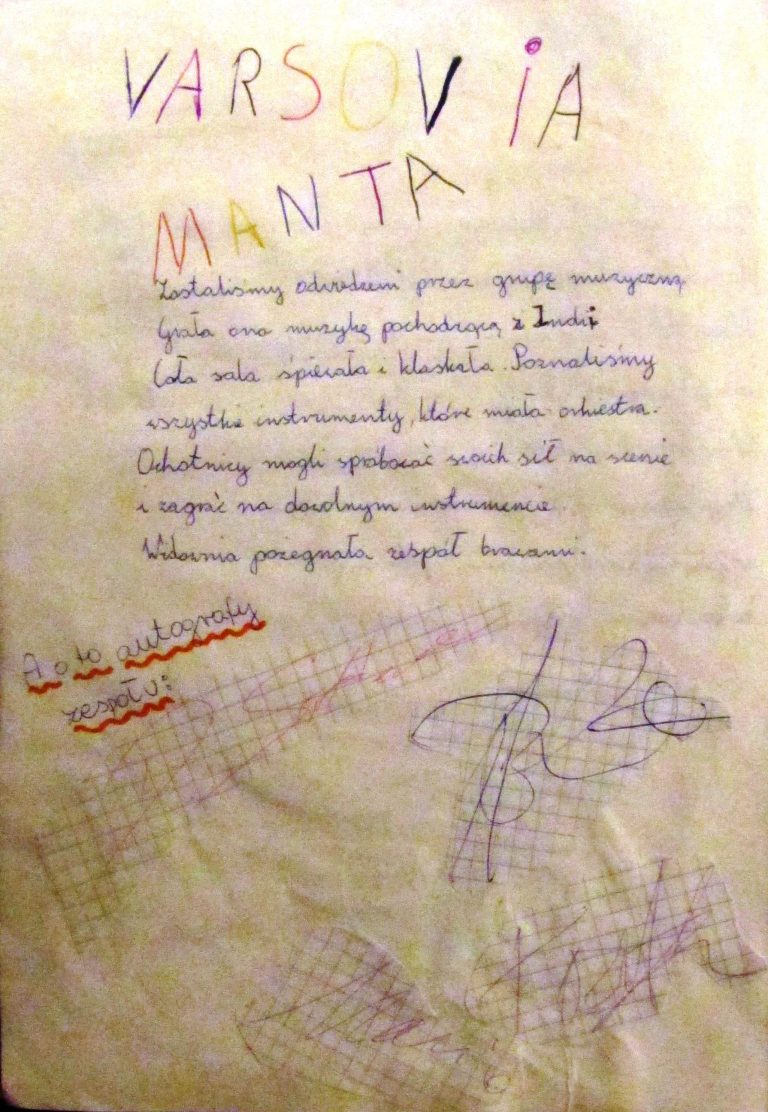 VARSOViA
MANTA
Zostaliśmy odwiedzeni przez grupę muzyczną
Grała ona muzykę pochodzącą z Indii
Cała sala śpiewała i klaskała. Poznaliśmy
wszystkie instrumenty, które miała orkiestra.
Ochotnicy mogli spróbować swoich sił na scenie
i zagrać na dowolnym instrumencie.
Widownia pożegnała zespół brawami.
A oto autografy
zespołu: